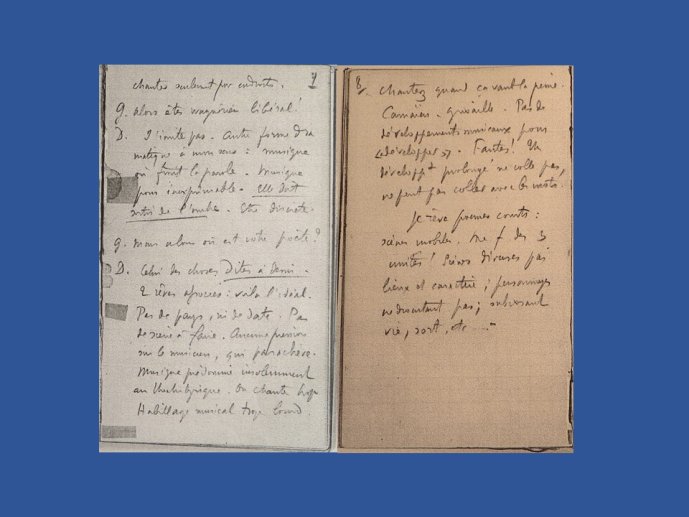 7
chantés seulement par endroits.
G. alors êtes wagnérien libéral!
D. J'imite pas. autre forme dra
matique à mon sens : musique
où finit la parole. Musique
pour inexprimable. Elle doit
sortir de l'ombre. Etre discrète.
G. mais alors où est votre poète?
D. Celui des choses Dites à demi.
2 rêves associés : voilà l'idéal.
Pas de pays, ni de date. Pas
de scène à faire. Aucune pression
sur le musicien, qui parachève.
Musique prédomine insolemment
au théâtre lyrique. On chante trop
Habillage musical trop lourd.
8
Chanter quand ça vaut la peine.
Camaïeu. grisaille. Pas de
développements musicaux pour
« développer ». Fautes! Un
développt prolongé ne colle pas,
ne peut pas coller avec les mots.
Je rêve poèmes courts :
scènes mobiles. Me f des 3
unités! Scènes diverses par
lieux et caractère ; personnages
ne discutant pas ; subissant
vie, sort, etc